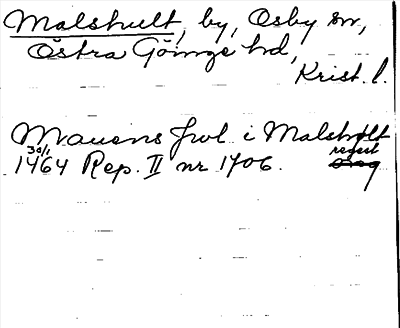 Malshult, by, Osby sn,
Östra Göinge hd,
Krist. l.
Mauens Jwl i Malsholt
30/1 regest
1464 Rep. II nr 1706. orig